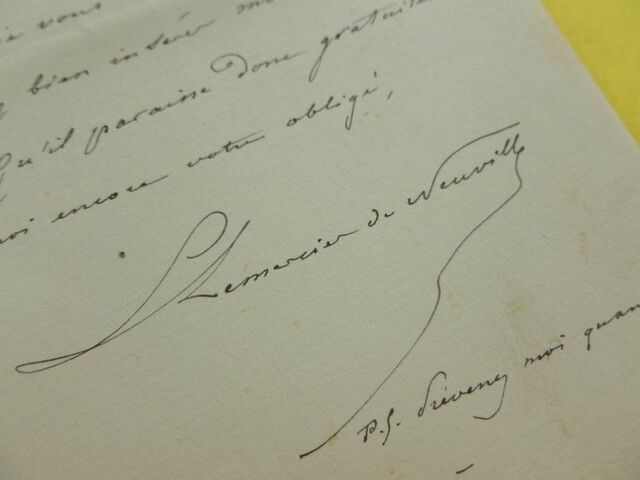 vous
bien insérer
qu'il paraisse donc gratuite
moi encore votre obligé,
L Lemercier de Neuville
P.S. Prévenez moi quan